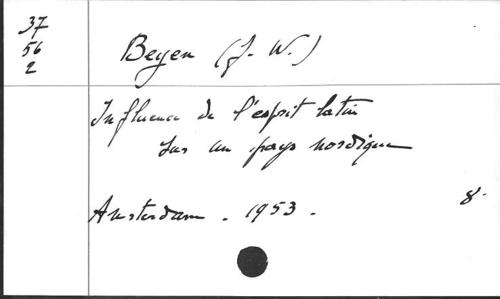 37
56
2
Beyen (J. W.)
Influence de l'esprit latin
sur un pays nordique
Amsterdam . 1953 .
8.